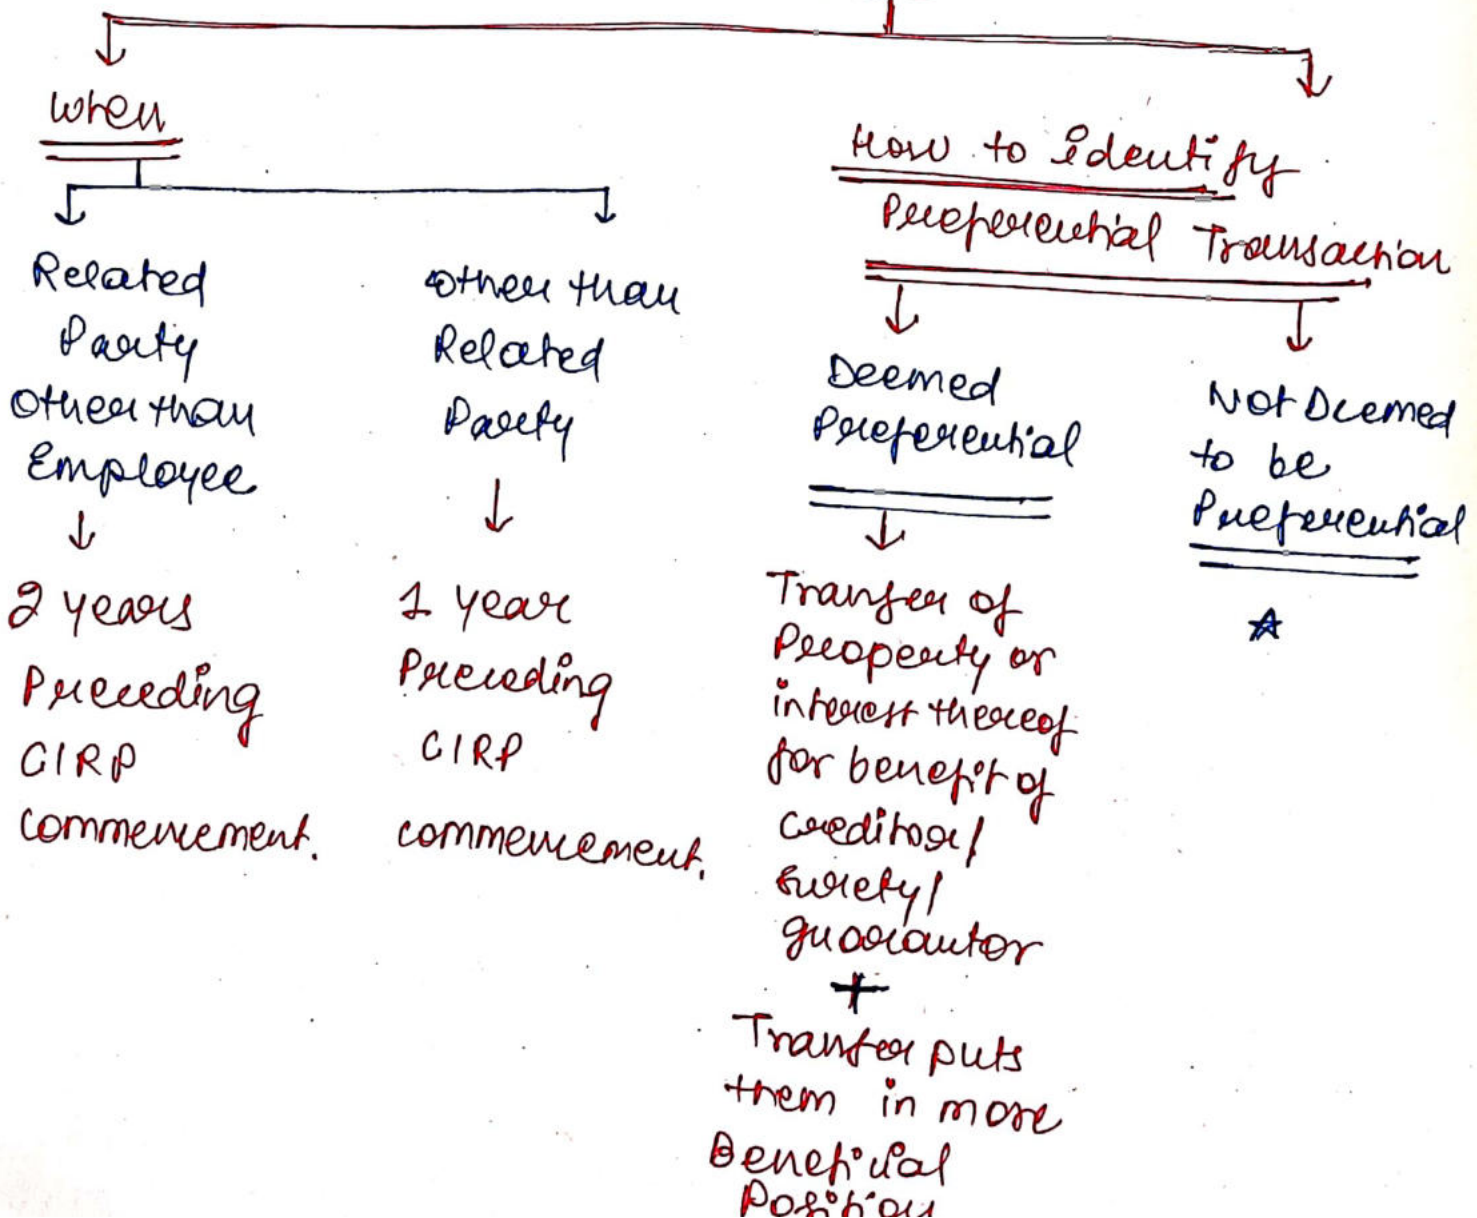 When
Related
Party
Other than
Employee
2 years
Preceding
CIRP
commencement.
other than
Related
Party
1 year
Preceding
CIRP
commencement.
How to identify
Preferential Transaction
Deemed
Preferential
Transfer of
Property or
interest thereof
for benefit of
creditor/
surety/
guarantor
+
Transfer puts
them in more
Beneficial
Position
Not Deemed
to be
Preferential